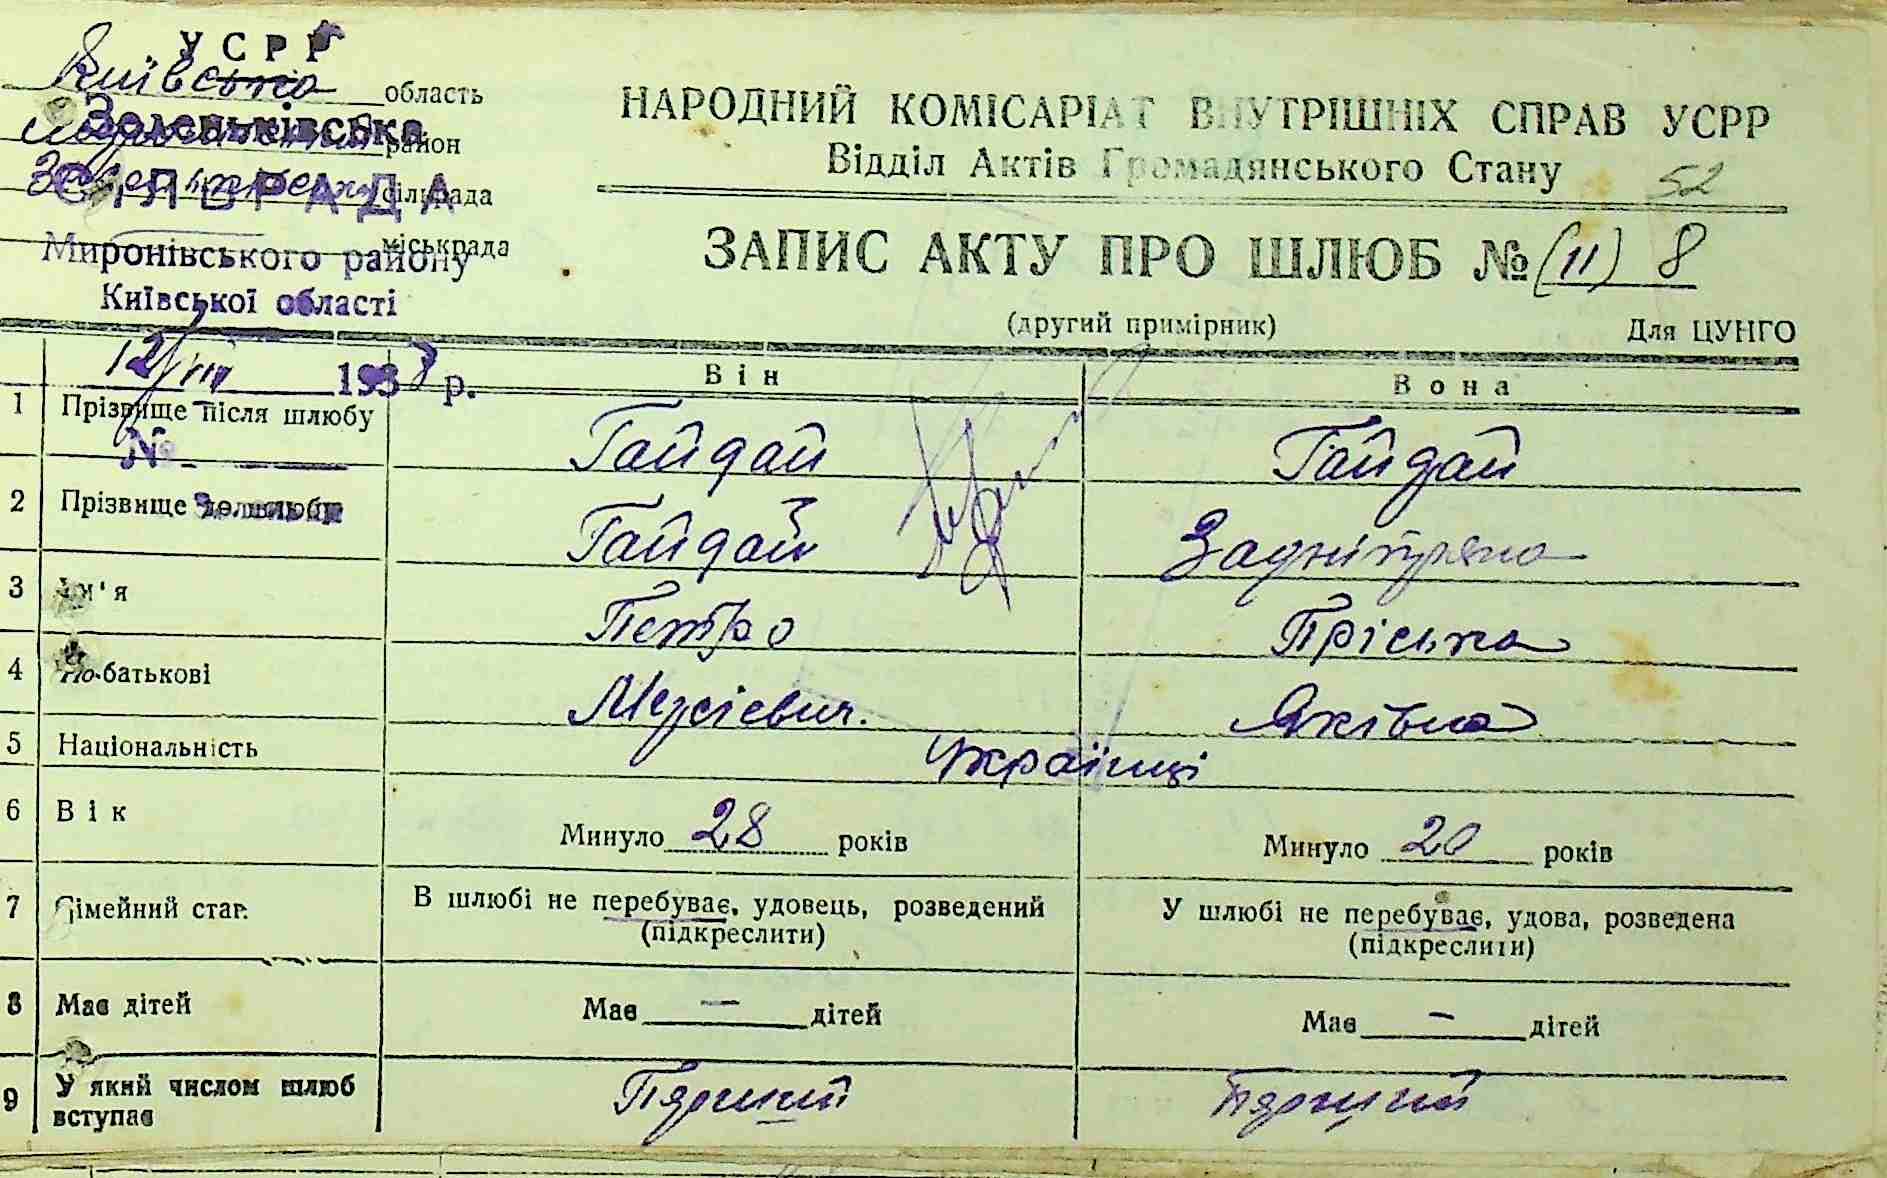 УСРР
Київська область
Зеленьківська
район
СІЛЬРАДА
сільрада
міськрада
Миронівського району
Київської області
12/VIII 1938 р.
№
НАРОДНИЙ КОМІСАРІАТ ВНУТРІШНІХ СПРАВ УСРР
Відділ Актів Громадянського Стану 52
ЗАПИС АКТУ ПРО ШЛЮБ № (11) 8
(другий примірник) Для ЦУНГО
Він Вона
1 Прізвище після шлюбу Гайдай Гайдай
2 Прізвище до шлюбу Гайдай Задніпряна
3 Ім'я Петро Пріська
4 По-батькові Мусієвич. Яківна
5 Національність Українці
6 Вік Минуло 28 років Минуло 20 років
7 Сімейний стан В шлюбі не перебуває, удовець, розведений У шлюбі не перебуває, удова, розведена
(підкреслити) (підкреслити)
8 Має дітей Має — дітей Має — дітей
9 У який числом шлюб Пярший Пярший
вступає